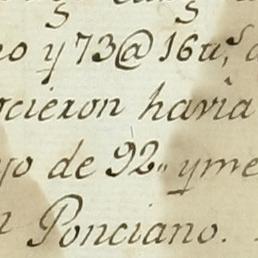 o y 73@ 16 us,
cieron havia
yo de 92,, y me
n Ponciano.